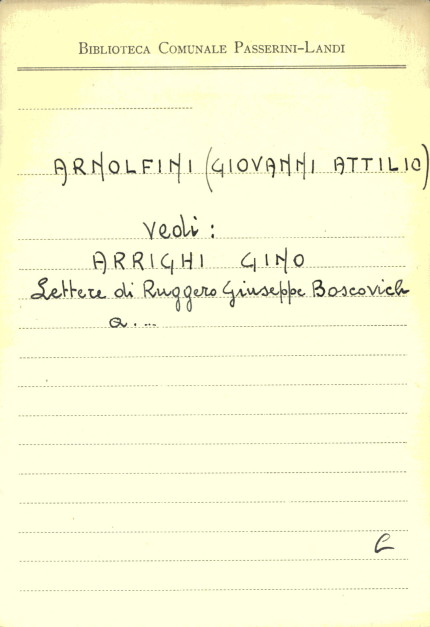 BIBLIOTECA COMUNALE PASSERINI-LANDI
ARNOLFINI (GIOVANNI ATTILIO)
vedi:
ARRIGHI GINO
Lettere di Ruggero Giuseppe Boscovich
a....
C